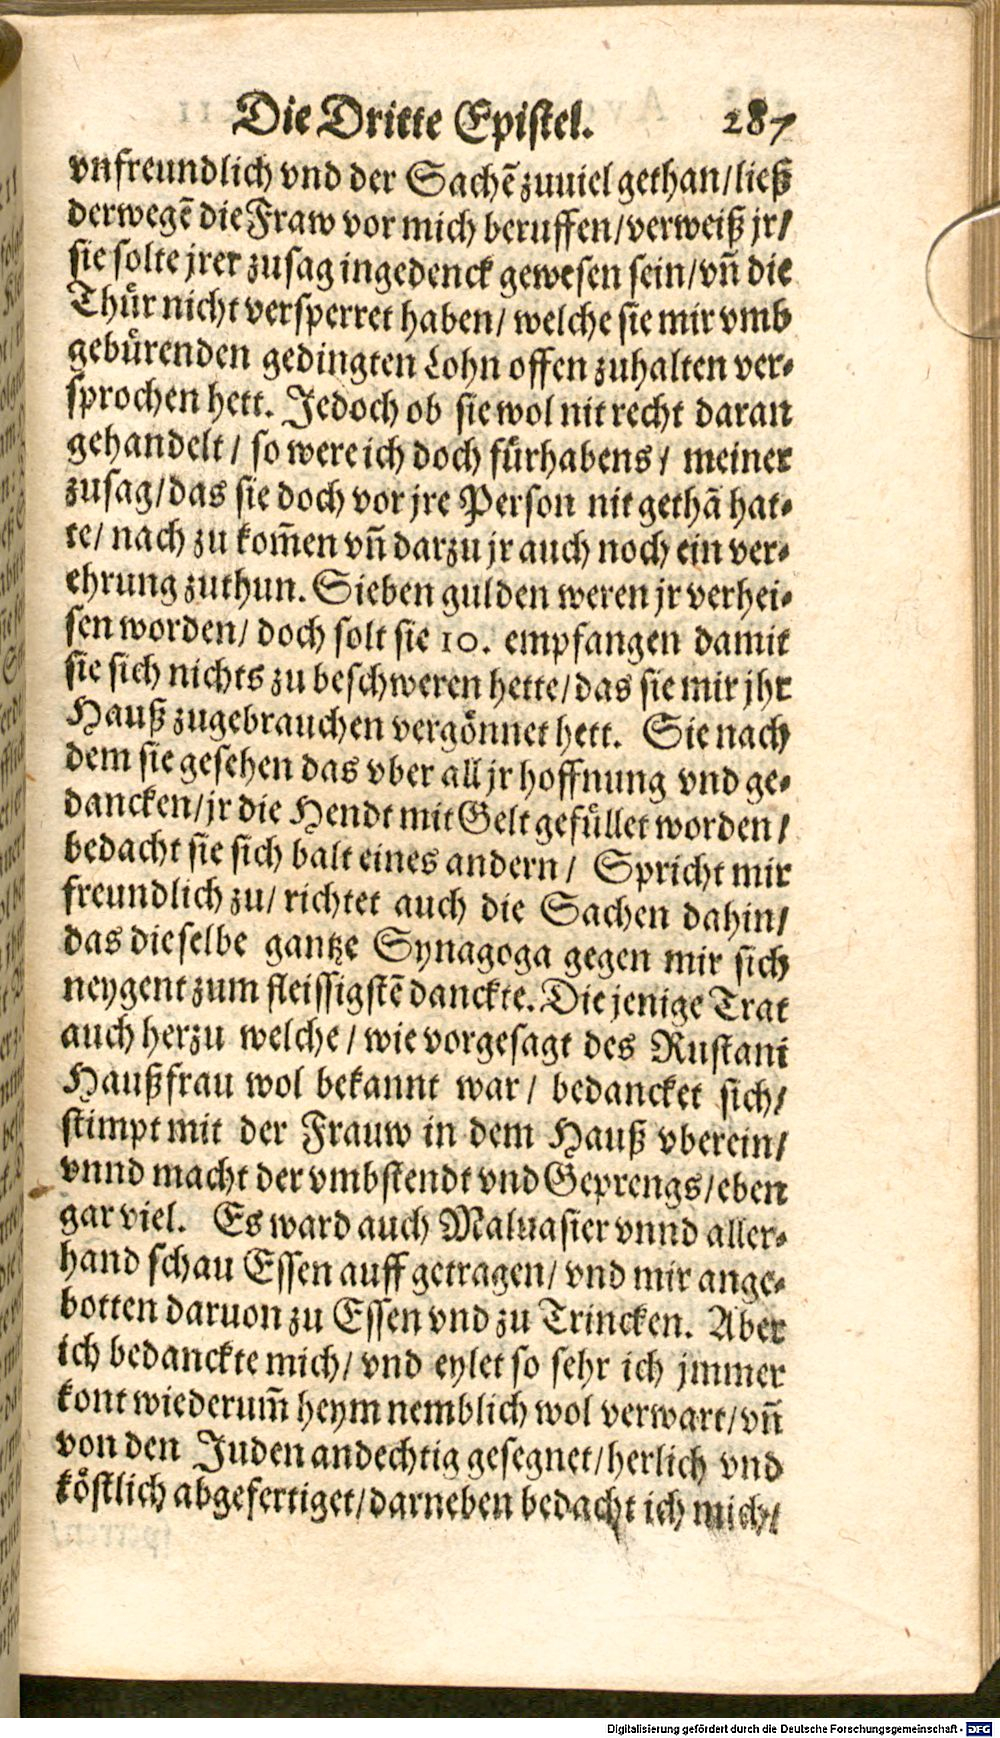 Die Dritte Epistel. 287
vnfreundlich vnd der Sachē zuuiel gethan/ließ
derwegē die Fraw vor mich beruffen/verweiß jr/
sie solte jrer zusag ingedenck gewesen sein/vn̄ die
Thür nicht versperret haben/ welche sie mir vmb
gebürenden gedingten Lohn offen zuhalten ver-
sprochen hett. Jedoch ob sie wol nit recht daran
gehandelt/ so were ich doch fürhabens/ meiner
zusag/das sie doch vor jre Person nit gethā hat-
te/ nach zu kom̄en vn̄ darzu jr auch noch ein ver-
ehrung zuthun. Sieben gulden weren jr verhei-
sen worden/ doch solt sie 10. empfangen damit
sie sich nichts zu beschweren hette/das sie mir jhr
Hauß zugebrauchen vergönnet hett. Sie nach
dem sie gesehen das vber all jr hoffnung vnd ge-
dancken/jr die Hendt mit Gelt gefüllet worden/
bedacht sie sich balt eines andern/ Spricht mir
freundlich zu/ richtet auch die Sachen dahin/
das dieselbe gantze Synagoga gegen mir sich
neygent zum fleissigstē danckte. Die jenige Trat
auch herzu welche/ wie vorgesagt des Rustani
Haußfrau wol bekannt war/ bedancket sich/
stimpt mit der Frauw in dem Hauß vberein/
vnnd macht der vmbstendt vnd Geprengs/eben
gar viel. Es ward auch Maluasier vnnd aller-
hand schau Essen auff getragen/ vnd mir ange-
botten daruon zu Essen vnd zu Trincken. Aber
ich bedanckte mich/ vnd eylet so sehr ich jmmer
kont wiederum̄ heym nemblich wol verwart/vn̄
von den Juden andechtig gesegnet/herlich vnd
köstlich abgefertiget/darneben bedacht ich mich/
Digitalisierung gefördert durch die Deutsche Forschungsgemeinschaft - DFG